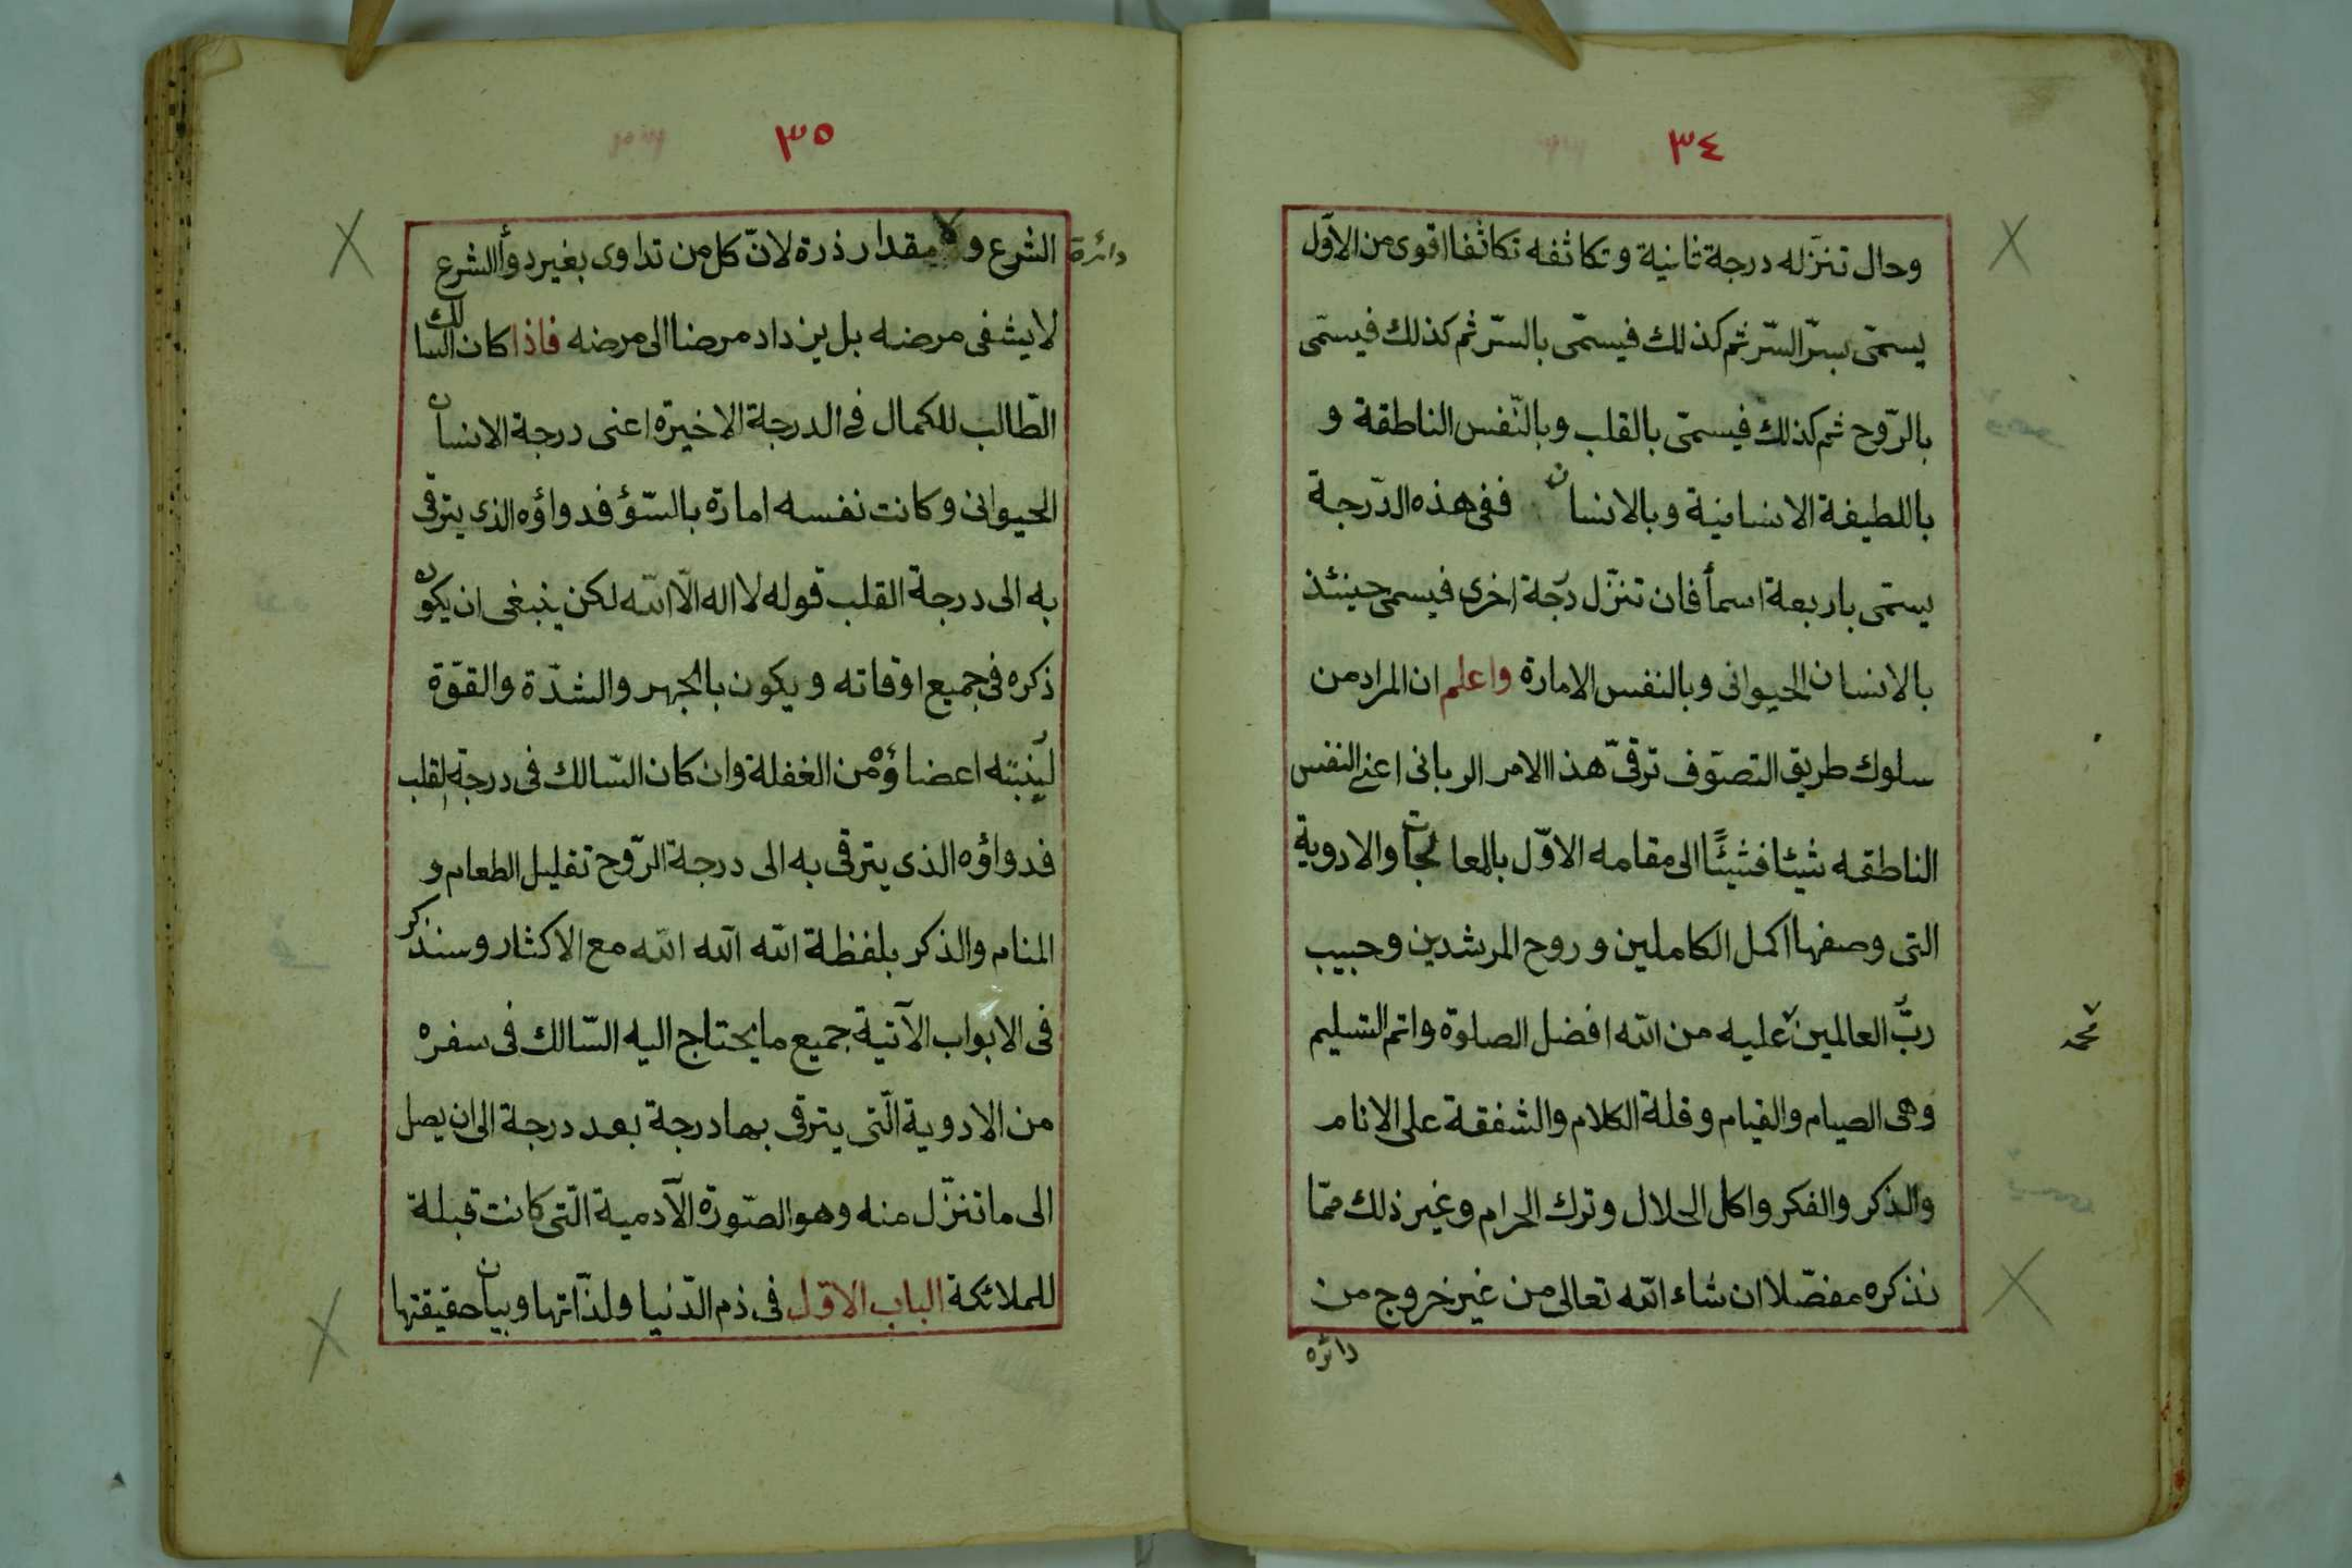 ٣٤
وحال تنزّله درجة ثانية وتكاثفه تكاثفا اقوى من الاوّل
يسمّى بسرّ السّرّ ثم كذلك فيسمّى بالسّر ثم كذلك فيسمّى
بالرّوح ثم كذلك فيسمّى بالقلب وبالنّفس الناطقة و
باللطيفة الانسانية وبالانسان ففى هذه الدّرجة
يسمّى باربعة اسمأ فان تنزّل درجة اخرى فيسمى حينئذ
بالانسان الحيوانى وبالنفس الامارة واعلم ان المراد من
سلوك طريق التصوّف ترقىّ هذا الامر الربانى اعنى النفس
الناطقه شيئا فشيئًا الى مقامه الاوّل بالمعالجات والادوية
التى وصفها اكمل الكاملين و روح المرشدين وحبيب
ربّ العالمين عليه من اللّه افضل الصلوة واتم التسليم
محمد
وهى الصيام والقيام وقلة الكلام والشفقة على الانام
والذكر والفكر واكل الحلال وترك الحرام وغير ذلك ممّا
نذكره مفصّلا ان شاء اللّه تعالى من غير خروج من
دائره
٣٥
دائرة
الشرع ولا مقدار ذرة لانّ كل من تداوى بغير دوأ الشرع
لا يشفى مرضه بل يزداد مرضا الى مرضه فاذا كان السالك
الطّالب للكمال فى الدرجة الاخيرة اعنى درجة الانسان
الحيوانى وكانت نفسه امارة بالسّؤ فدواؤه الذى يترقى
به الى درجة القلب قوله لا اله الّا اللّه لكن ينبغى ان يكون
ذكره فى جميع اوقاته ويكون بالجهر والشدّة والقوّة
لينبّه اعضاؤه من الغفلة وان كان السّالك فى درجة القلب
فدواؤه الذى يترقى به الى درجة الرّوح تقليل الطعام و
المنام والذكر بلفظة اللّه اللّه اللّه مع الاكثار وسنذكر
فى الابواب الآتية جميع ما يحتاج اليه السّالك فى سفره
من الادوية الّتى يترقى بها درجة بعد درجة الى ان يصل
الى ما تنزّل منه وهو الصّورة الآدمية الّتى كانت قبلة
للملائكة الباب الاوّل فى ذم الدّنيا ولذّاتها وبيان حقيقتها